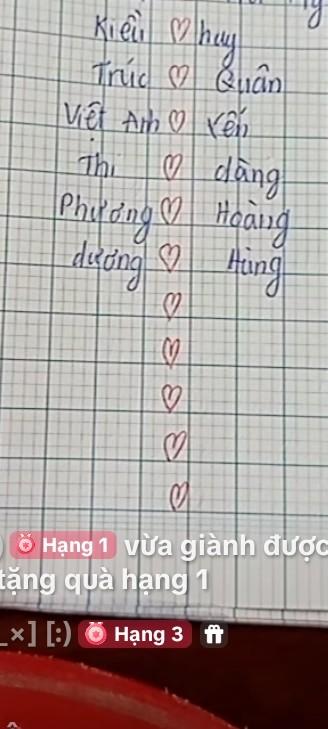 Kiều ♡ huy
Trúc ♡ Quân
Việt Anh ♡ Yến
Thi ♡ dăng
Phương ♡ Hoàng
dương ♡ Hùng
♡
♡
♡
♡
♡
Hạng 1 vừa giành được
tặng quà hạng 1
_×] [:) Hạng 3